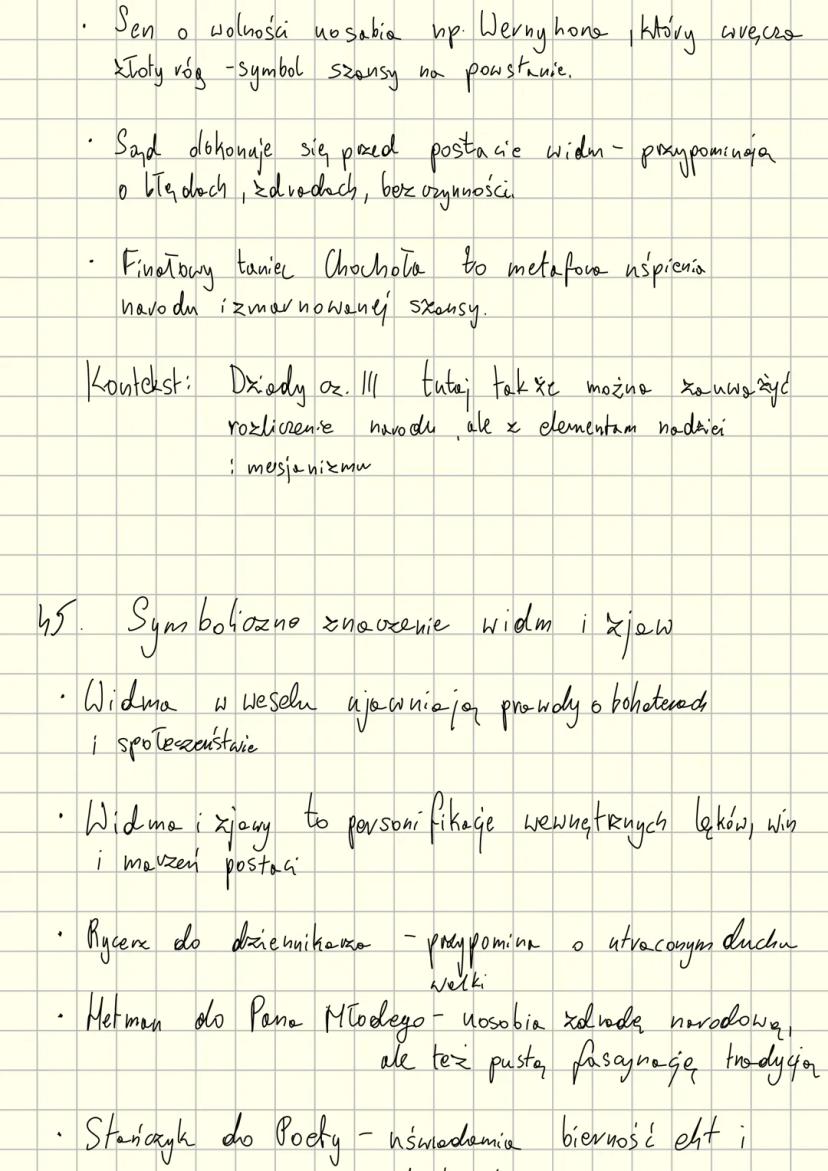 · Sen o wolności uosabia np. Wernyhora, który wręcza
złoty róg - symbol szansy na powstanie.
· Sąd dokonuje się przed postacie widm - przypominają
o błędach, zdradach, bezczynności.
· Finałowy taniec Chochoła to metafora uśpienia
narodu i zmarnowanej szansy.
Kontekst: Dziady cz. III tutaj także można zauważyć
rozliczenie narodu, ale z elementam nadziei
i mesjanizmu
45. Symboliczne znaczenie widm i zjaw
· Widma w weselu ujawniają prawdy o bohaterach
i społeczeństwie
· Widma i zjawy to personifikacje wewnętrznych lęków, win
i marzeń postaci
· Rycerz do dziennikarza - przypomina o utraconym duchu
walki
· Hetman do Pana Młodego - uosobia zdradę narodową,
ale też pustą fascynację tradycją
· Stańczyk do Poety - uświadamia bierność elit i